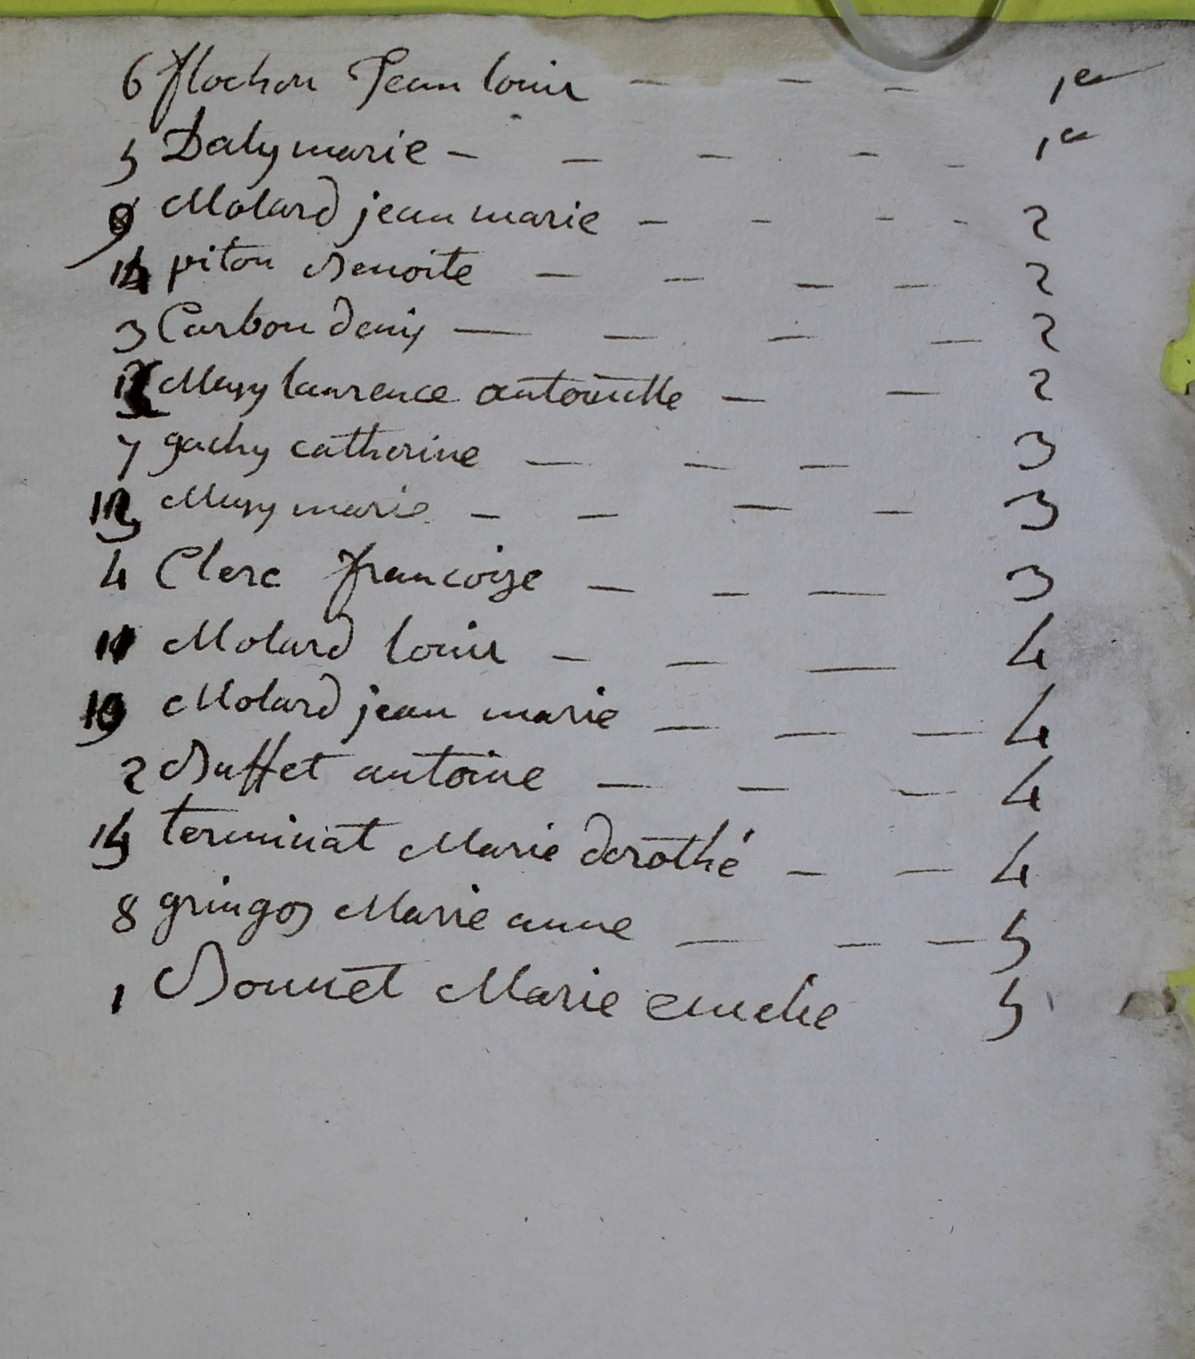 6 flochon Jean louis — — — 1er
5 Daly marie — — — — — 1er
9 Molard jean marie — — — — 2
piton Benoite — — — — 2
3 Carbon denis — — — — 2
Musy laurence antoinette — — 2
7 gachy catherine — — — 3
13 Musy marie — — — — 3
4 Clerc francoise — — — 3
11 Molard louis — — — 4
10 Molard jean marie — — — 4
2 Buffet antoine — — — 4
15 terminat Marie dorothé — — 4
8 gringoz Marie anne — — — 5
1 Bonnet Marie 5